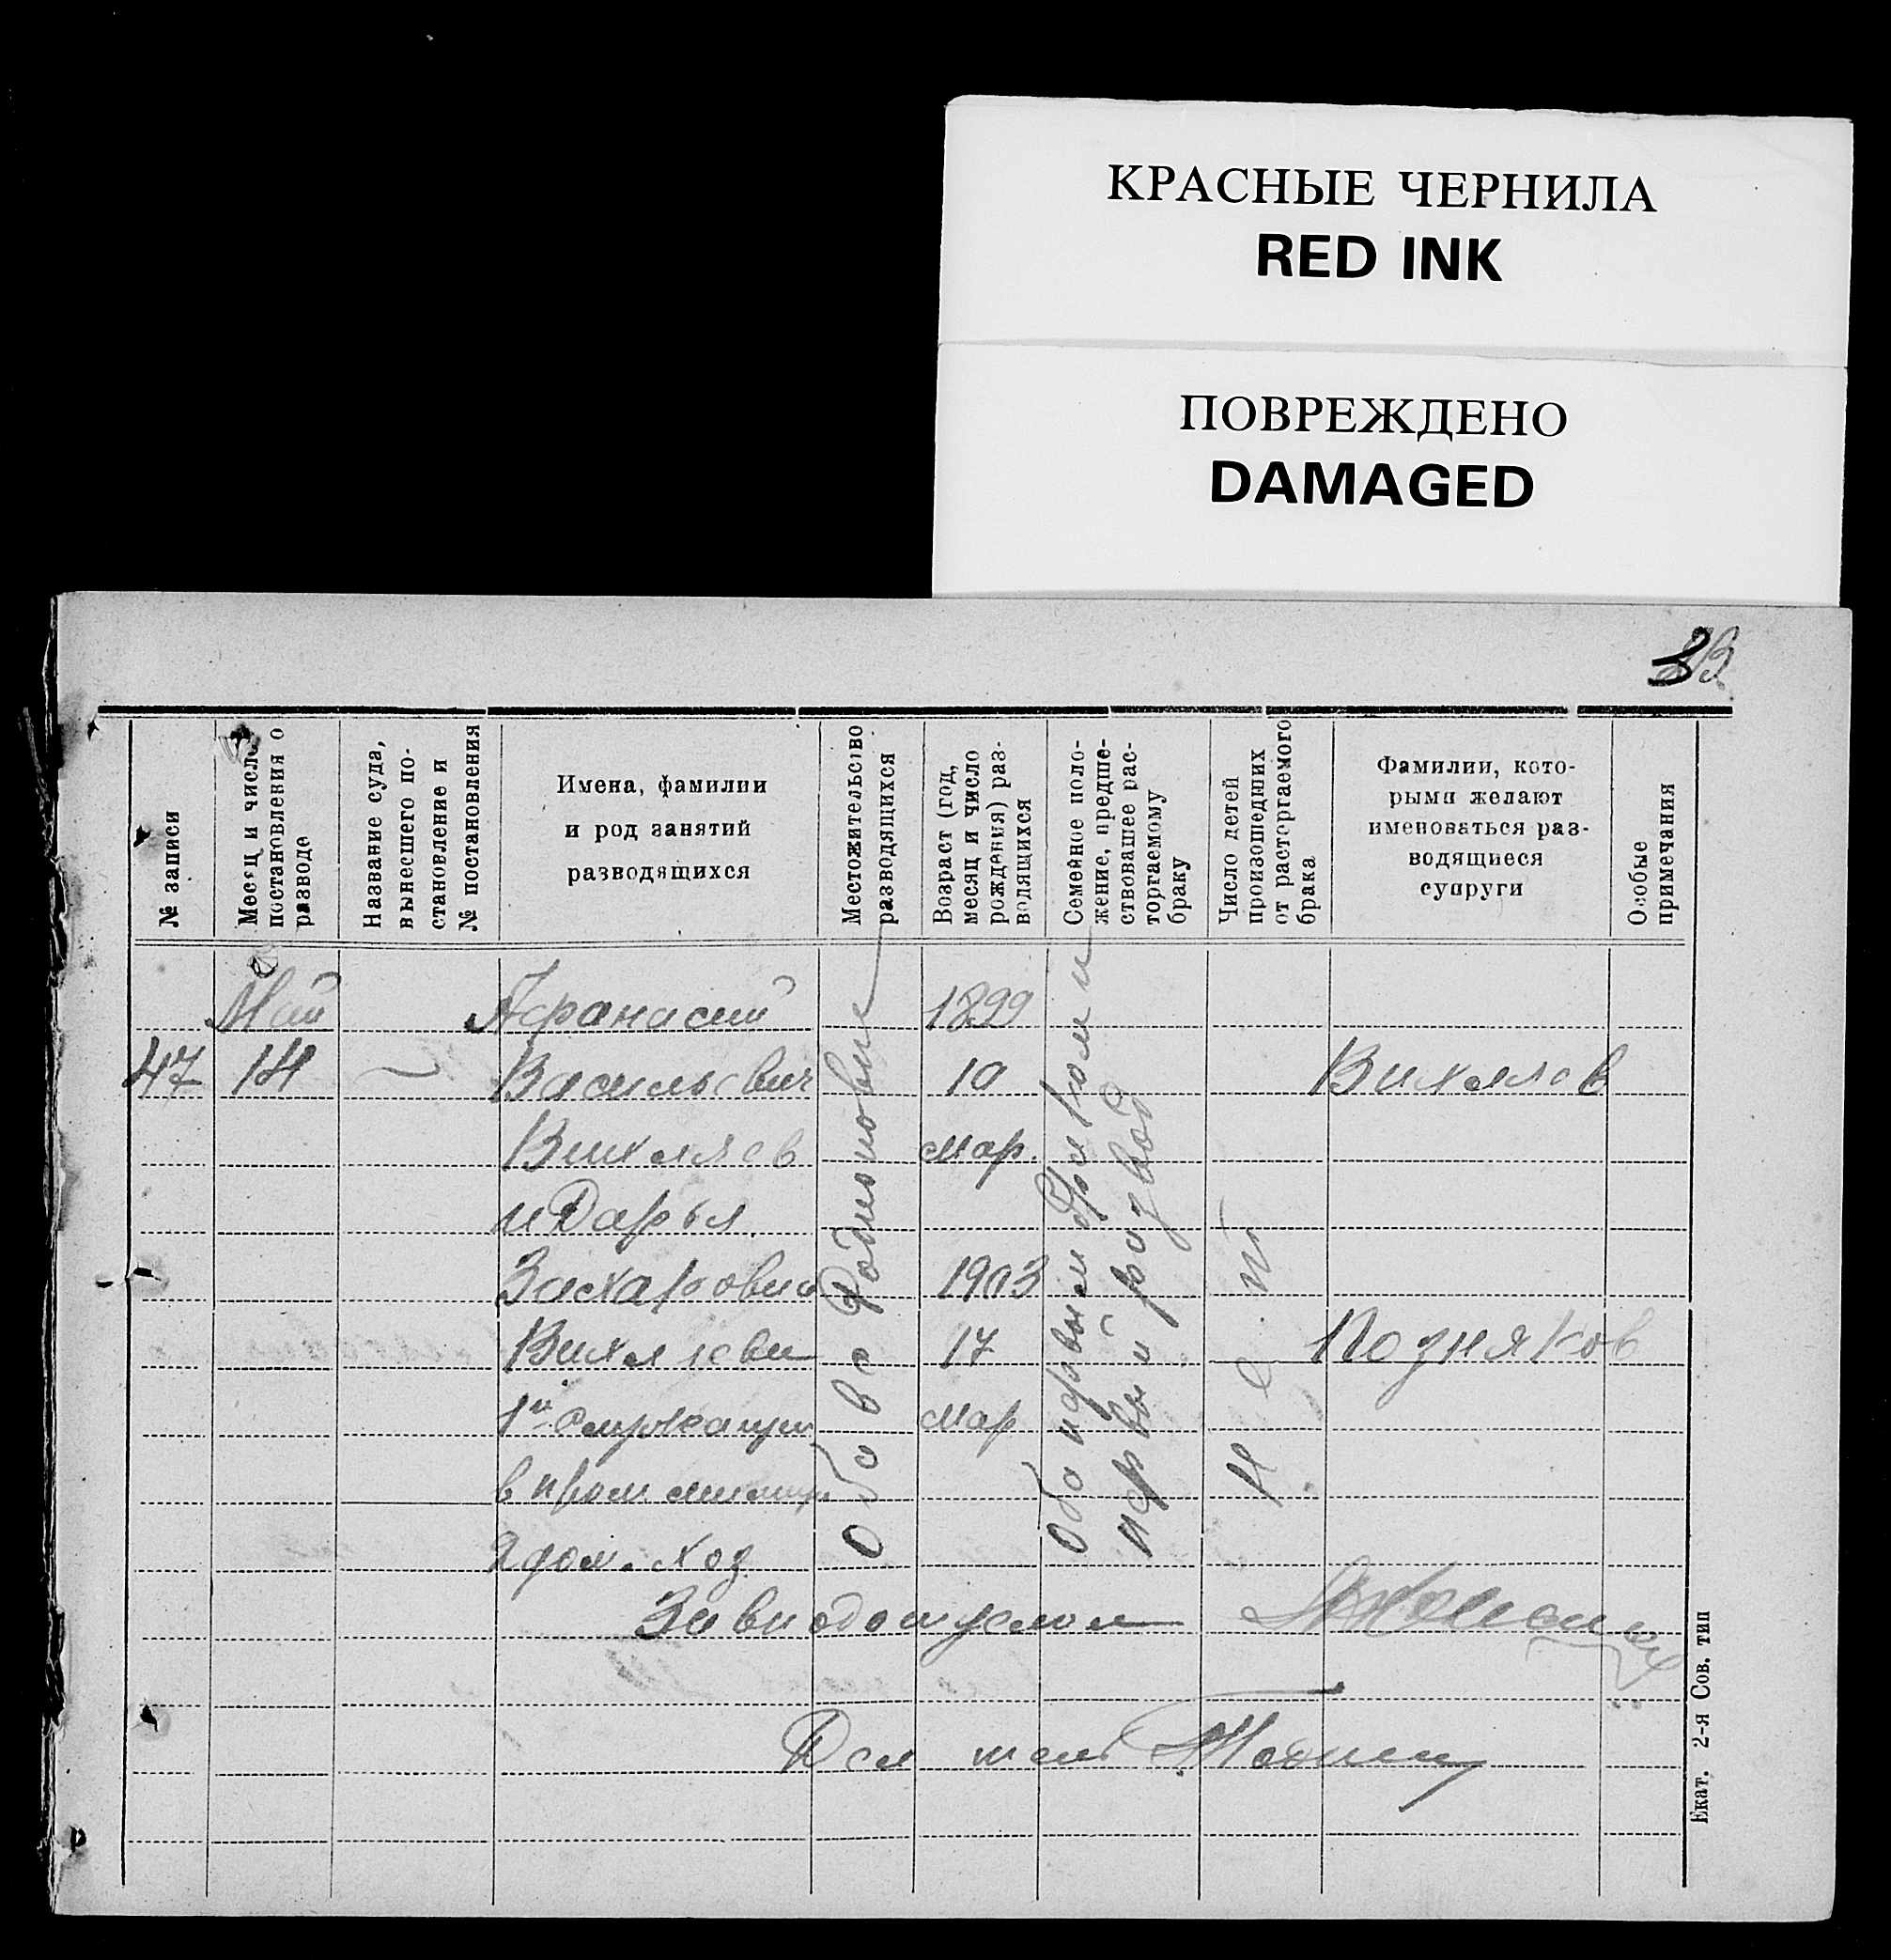 КРАСНЫЕ ЧЕРНИЛА
RED INK
ПОВРЕЖДЕНО
DAMAGED
№ записи
Месяц и число
постановления о
разводе
Название суда,
вынесшего по-
становление и
№ постановления
Имена, фамилии
и род занятий
разводящихся
Местожительство
разводящихся
Возраст (год,
месяц и число
рождения) раз-
водящихся
Семейное поло-
жение, предше-
ствовавшее рас-
торгаемому
браку
Число детей
происшедших
от расторгаемого
брака
Фамилии, кото-
рыми желают
именоваться раз-
водящиеся
супруги
Особые
примечания
Май Афанасий 1899
47 14 — Васильевич 10 Вихляев
Вихляев мар.
и Дарья
Захаровна 1903
Вихляева 17 Позняков
мар
2 дом. хоз.
Оба в с Родионовке
Оба первым браком и
первый развод
Нет
Зав подотделом
Екат. 2-я Сов. тип